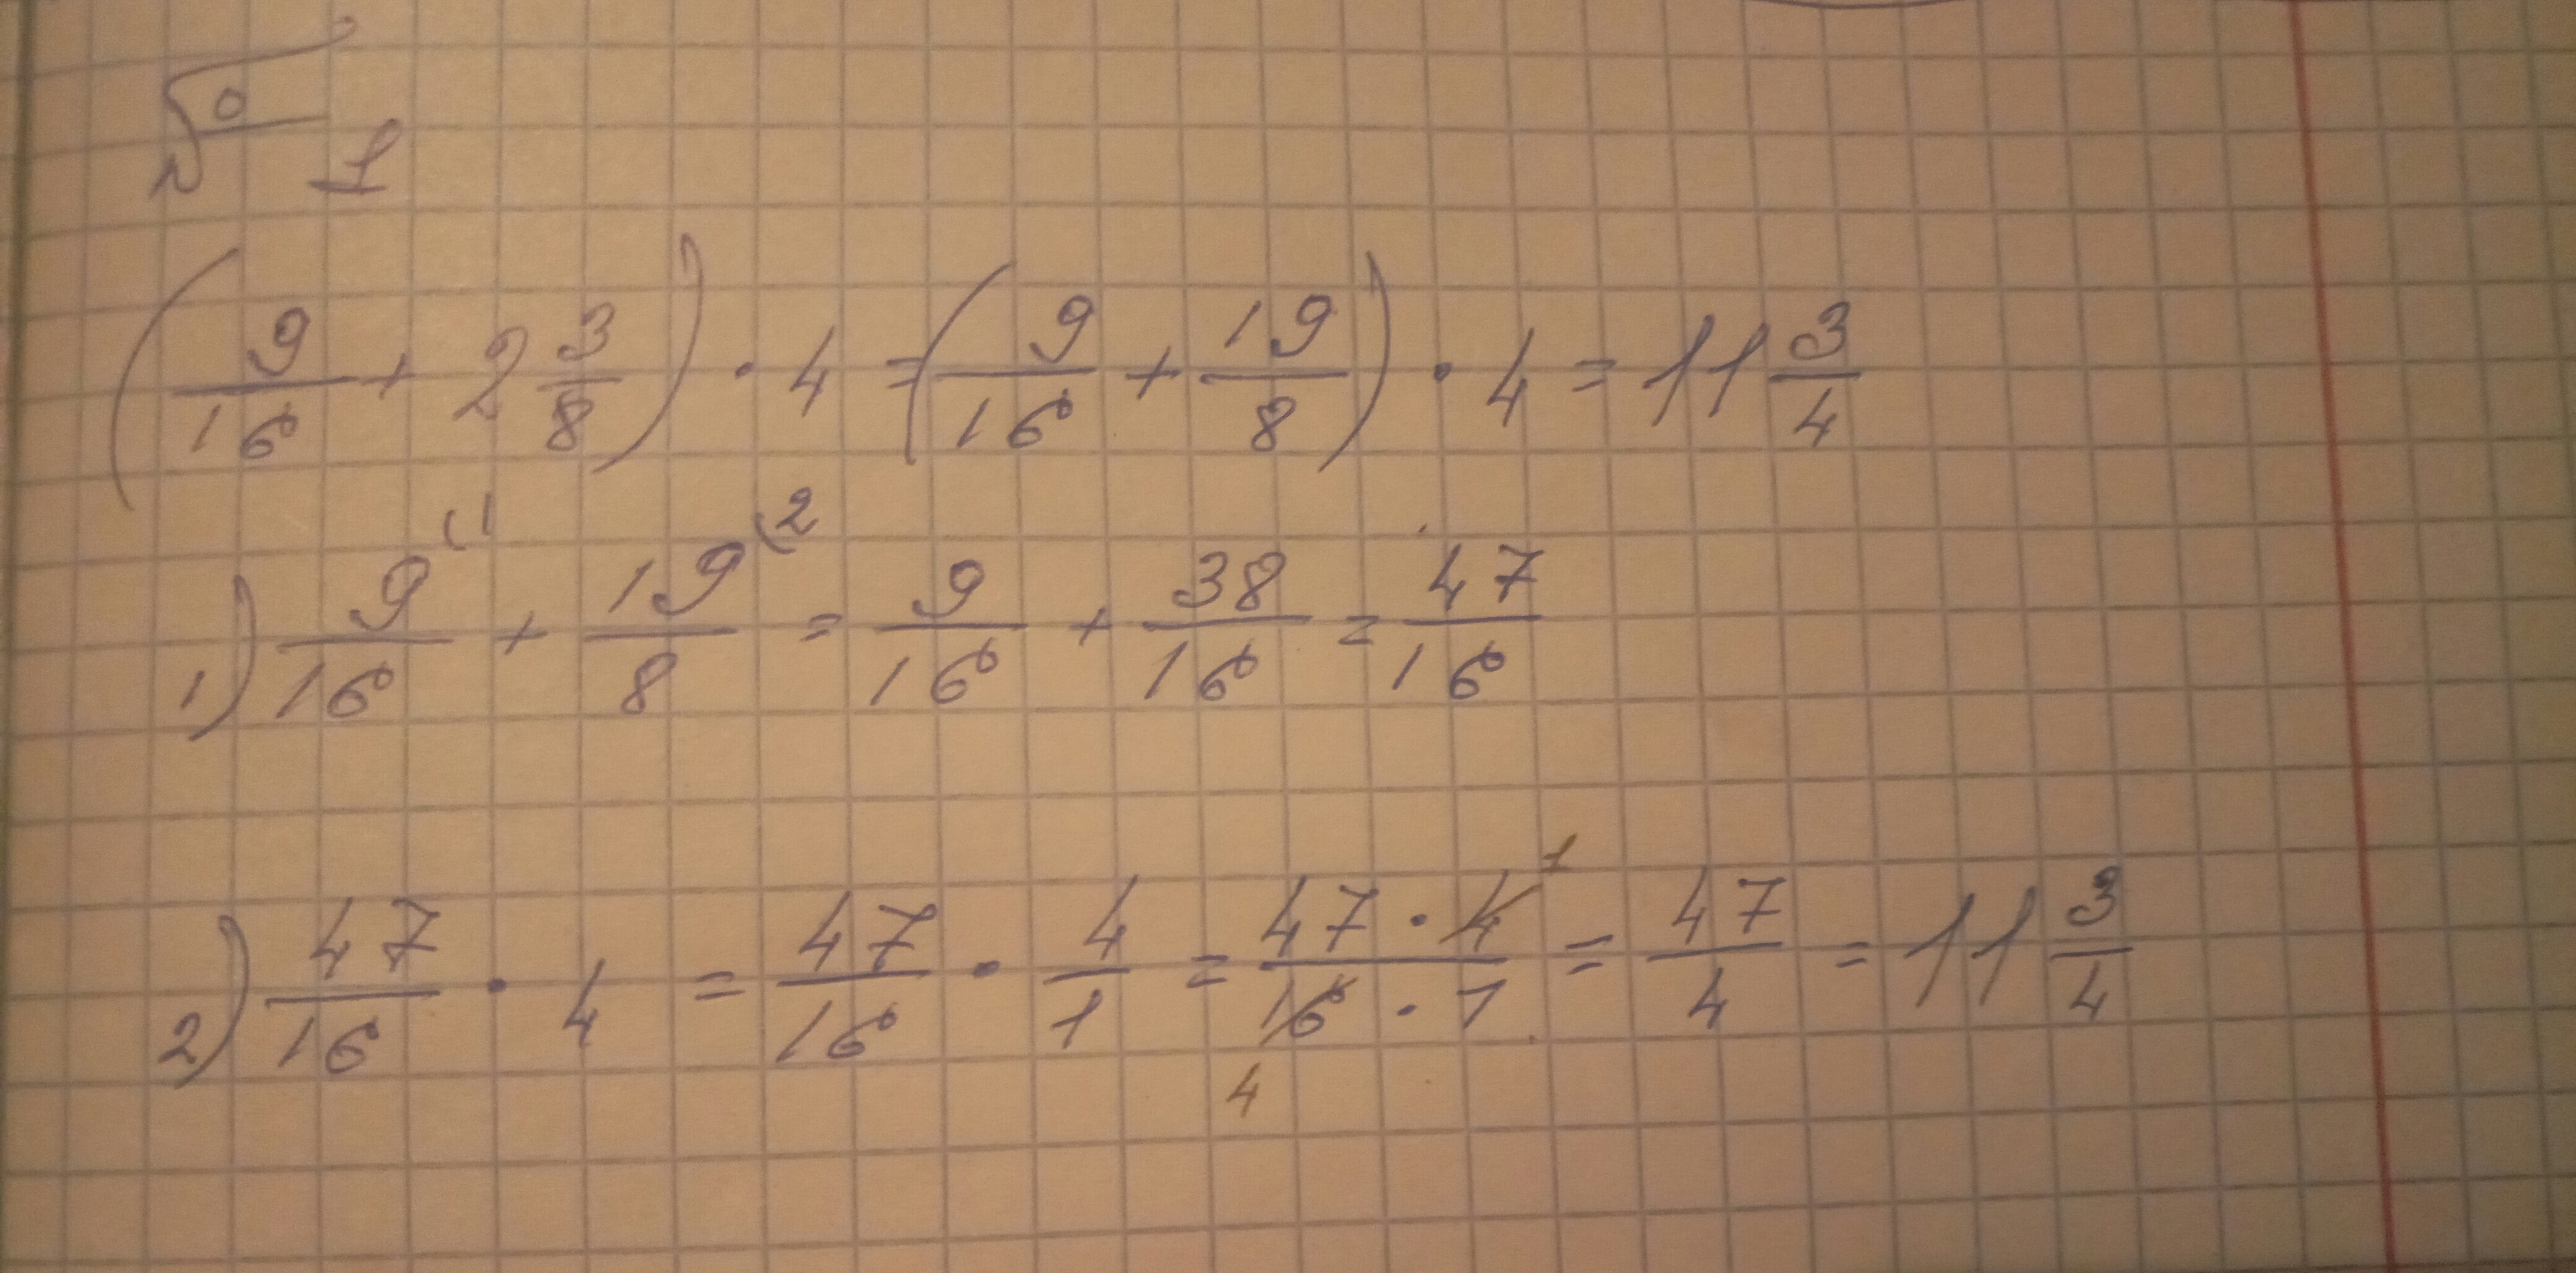 № 1
(9/16 + 2 3/8) · 4 = (9/16 + 19/8) · 4 = 11 3/4
1) 9/16 (1 + 19/8 (2 = 9/16 + 38/16 = 47/16
2) 47/16 · 4 = 47/16 · 4/1 = 47 · 4 1/16 · 1 4 = 47/4 = 11 3/4